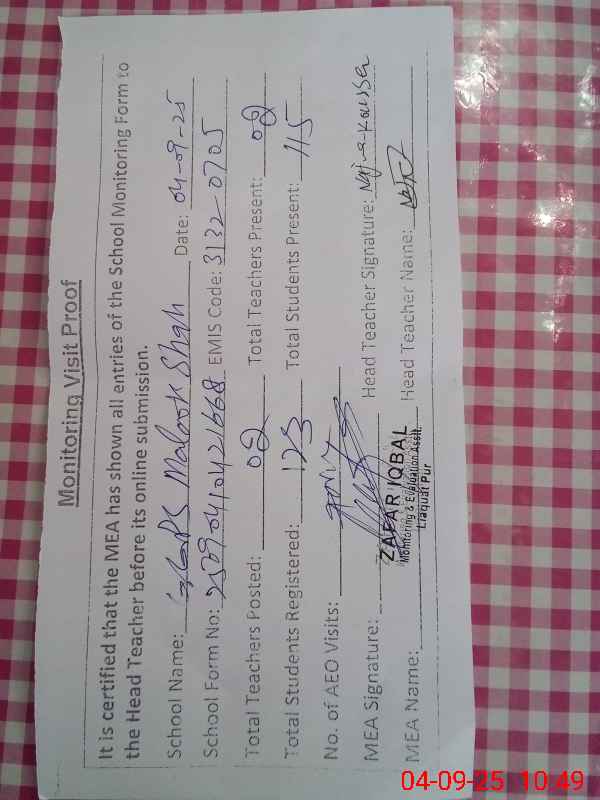 Monitoring Visit Proof
It is certified that the MEA has shown all entries of the School Monitoring Form to
the Head Teacher before its online submission.
School Name: GGPS Malook Shah Date: 04-09-25
School Form No: 25090410421668 EMIS Code: 3132-0705
Total Teachers Posted: 02 Total Teachers Present: 02
Total Students Registered: 123 Total Students Present: 115
No. of AEO Visits:
MEA Signature: Head Teacher Signature:
ZAFAR IQBAL
Monitoring & Evaluation Asstt.
Liaquat Pur
MEA Name: Head Teacher Name:
04-09-25 10:49